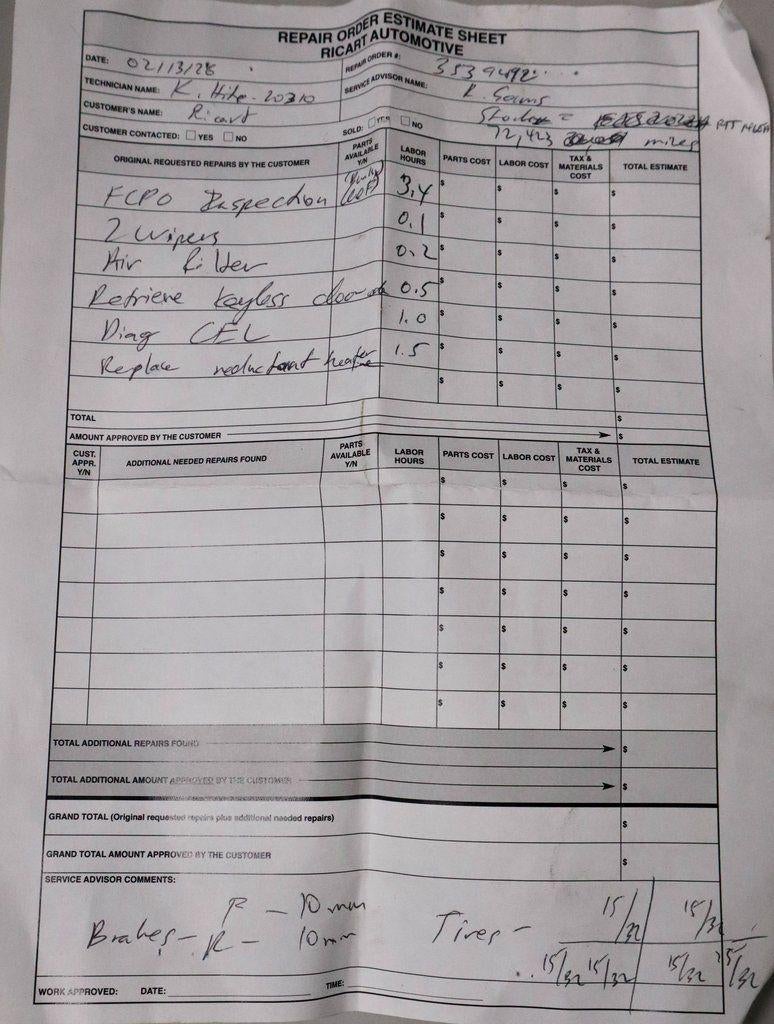 REPAIR ORDER ESTIMATE SHEET
RICART AUTOMOTIVE
DATE: 02/13/28 REPAIR ORDER #: 3539492
TECHNICIAN NAME: K. Hite 20310 SERVICE ADVISOR NAME: R.
CUSTOMER'S NAME: Ricart
CUSTOMER CONTACTED: YES NO SOLD: YES NO 72,423 miles
ORIGINAL REQUESTED REPAIRS BY THE CUSTOMER PARTS AVAILABLE Y/N LABOR HOURS PARTS COST LABOR COST TAX & MATERIALS COST TOTAL ESTIMATE
FCPO Inspection 3.4 $ $ $ $
2 wipers 0.1 $ $ $ $
Air Filter 0.2 $ $ $ $
Retrieve keyless door 0.5 $ $ $ $
Diag CEL 1.0 $ $ $ $
Replace reductant heater 1.5 $ $ $ $
$ $ $ $
TOTAL $
AMOUNT APPROVED BY THE CUSTOMER $
CUST. APPR. Y/N ADDITIONAL NEEDED REPAIRS FOUND PARTS AVAILABLE Y/N LABOR HOURS PARTS COST LABOR COST TAX & MATERIALS COST TOTAL ESTIMATE
$ $ $ $
$ $ $ $
$ $ $ $
$ $ $ $
$ $ $ $
$ $ $ $
$ $ $
TOTAL ADDITIONAL REPAIRS FOUND $
TOTAL ADDITIONAL AMOUNT APPROVED BY THE CUSTOMER $
GRAND TOTAL (Original requested repairs plus additional needed repairs) $
GRAND TOTAL AMOUNT APPROVED BY THE CUSTOMER $
SERVICE ADVISOR COMMENTS:
F - 10mm 15/32 15/32
Brakes - R - 10mm Tires -
15/32 15/32 15/32 15/32
WORK APPROVED: DATE: TIME: